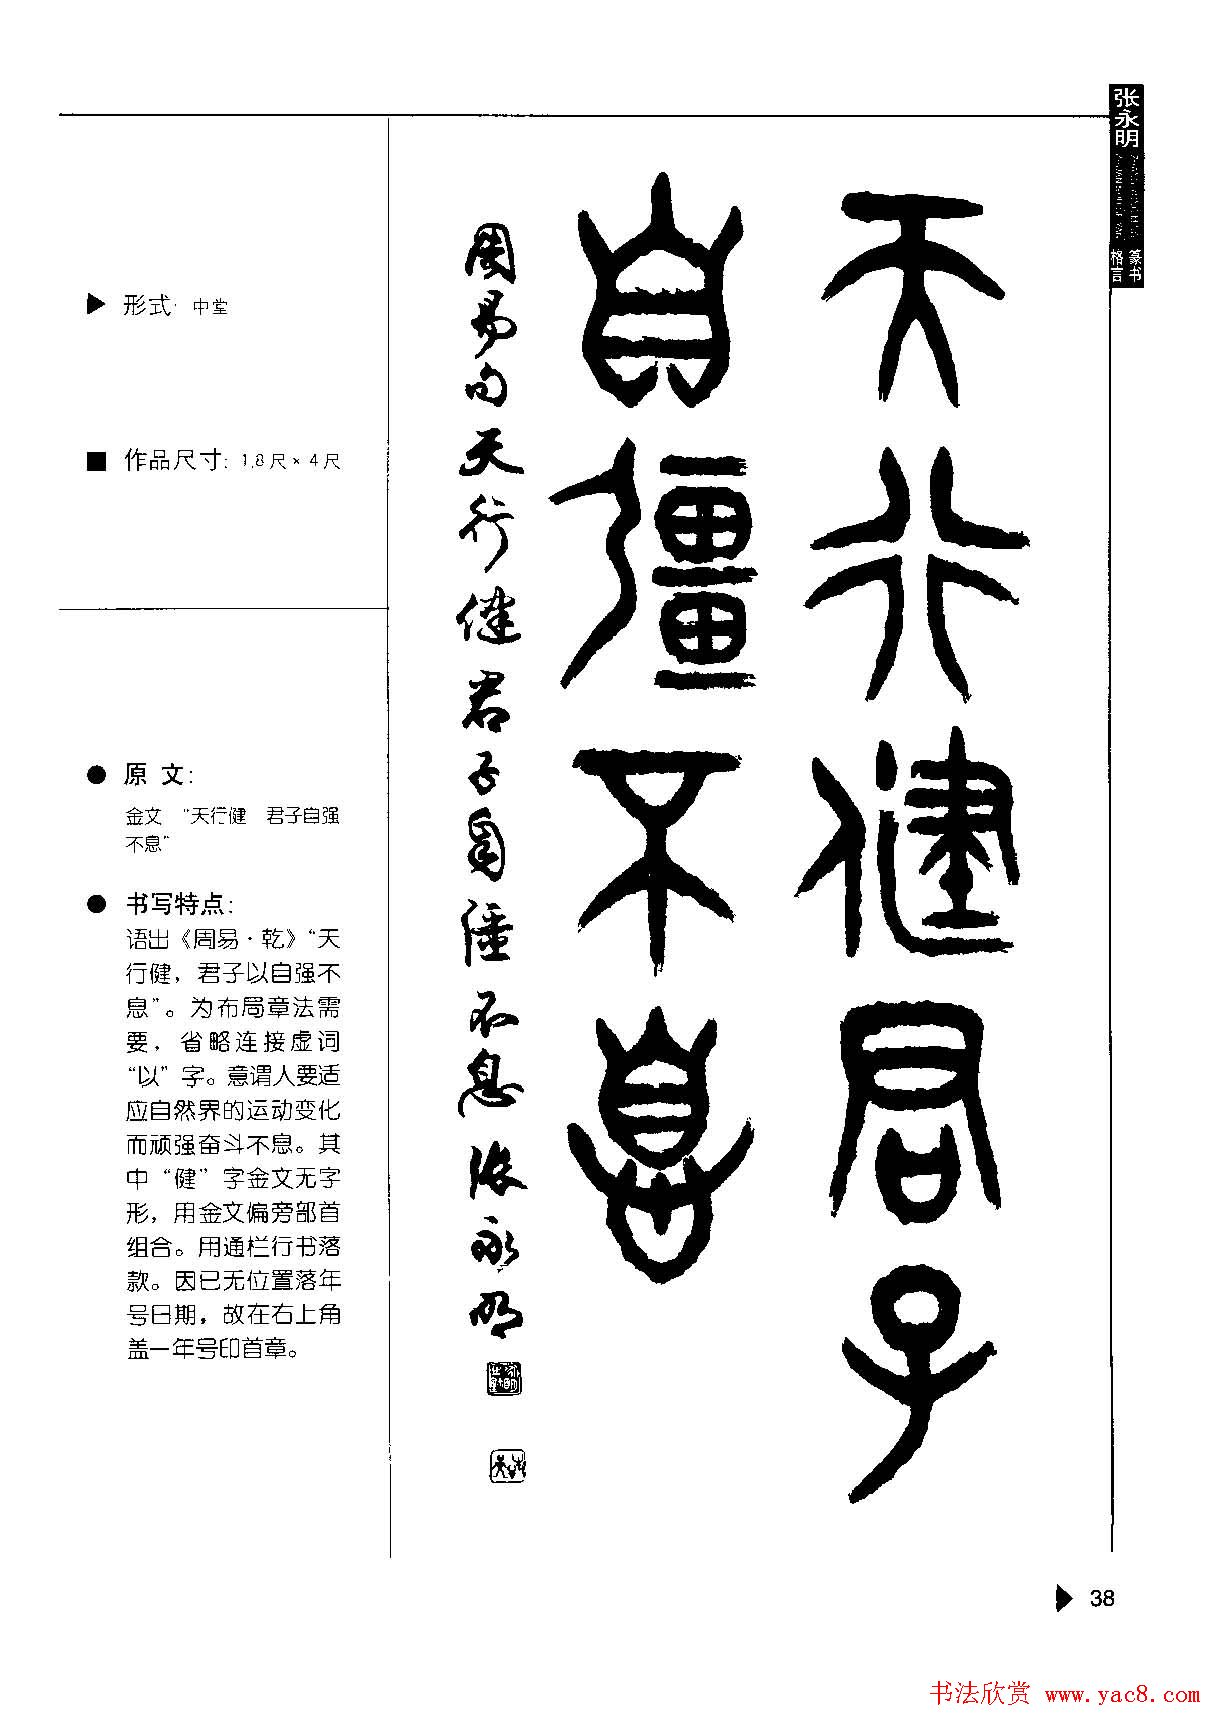 张永明
篆书
格言
▶ 形式: 中堂
■ 作品尺寸: 1.8尺×4尺
● 原 文:
金文 “天行健 君子自强
不息”
● 书写特点:
语出《周易·乾》“天
行健，君子以自强不
息”。为布局章法需
要，省略连接虚词
“以”字。意谓人要适
应自然界的运动变化
而顽强奋斗不息。其
中“健”字金文无字
形，用金文偏旁部首
组合。用通栏行书落
款。因已无位置落年
号日期，故在右上角
盖一年号印首章。
天行健君子
自彊不息
周易句天行健君子自彊不息张永明
38
书法欣赏 www.yac8.com